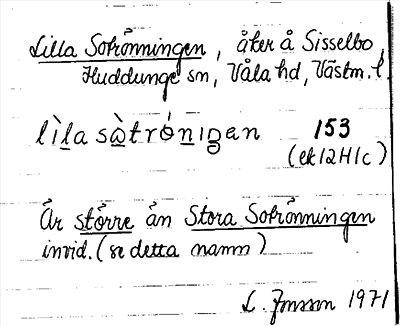 Lilla Sotrönningen, åker å Sisselbo,
Huddunge sn, Våla hd, Västm. l.
lìl̲a sòtró̲n̲iŋen 153
(ek 12H1c)
Är större än Stora Sotrönningen
invid. (se detta namn)
L. Jonsson 1971